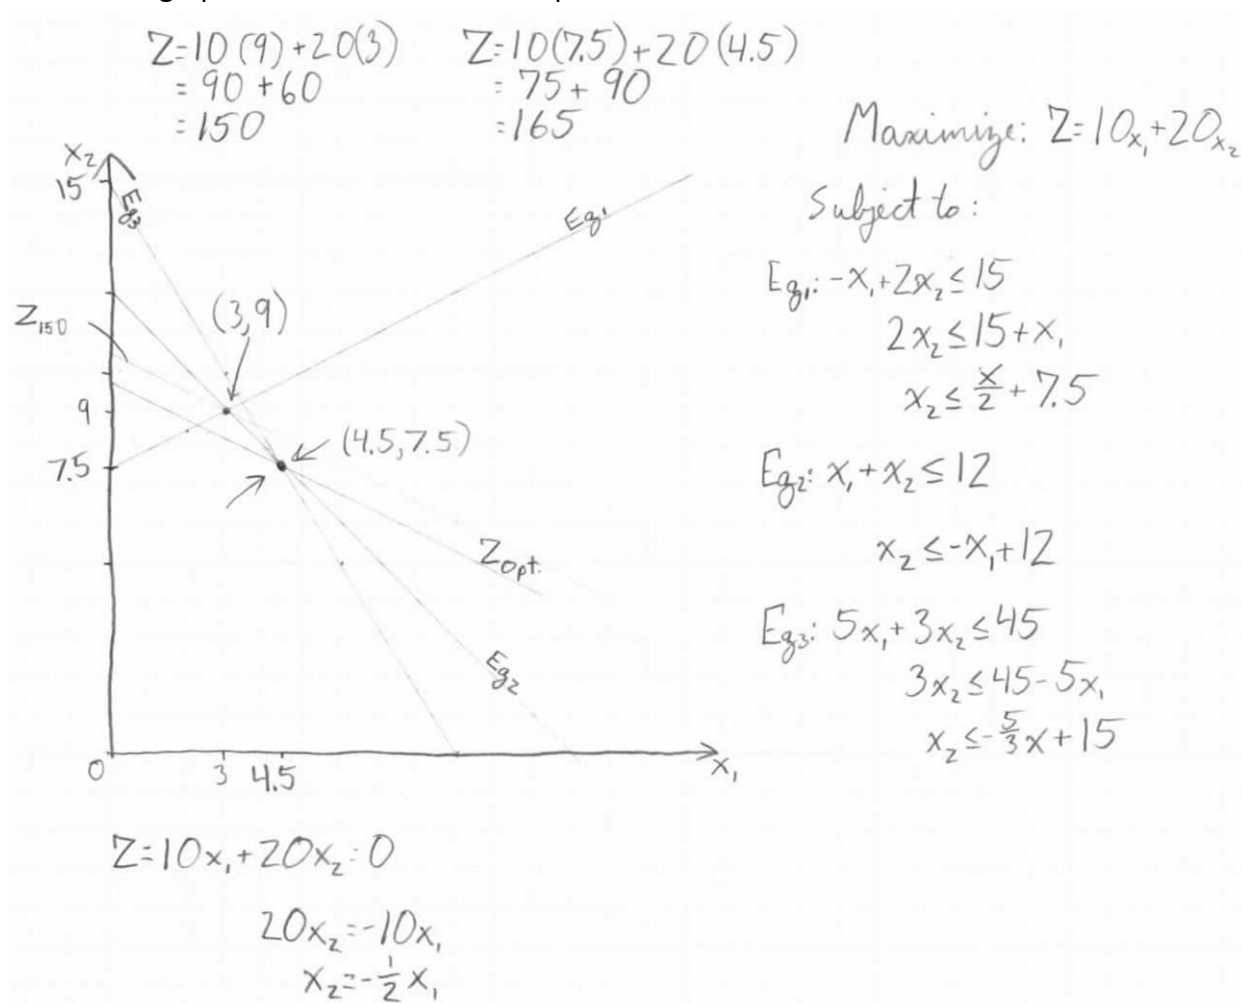 Z=10(9)+20(3)
=90+60
=150
Z=10(7.5)+20(4.5)
=75+90
=165
Maximize: Z=10x₁+20x₂
Subject to:
Eq₁: -x₁+2x₂≤15
2x₂≤15+x₁
x₂≤x/2+7.5
Eq₂: x₁+x₂≤12
x₂≤-x₁+12
Eq₃: 5x₁+3x₂≤45
3x₂≤45-5x₁
x₂≤-5/3x+15
x₂
15
Eq₃
Eq₁
Z₁₅₀
(3,9)
9
(4.5,7.5)
7.5
Zopt.
Eq₂
0
3
4.5
x₁
Z=10x₁+20x₂=0
20x₂=-10x₁
x₂=-1/2x₁